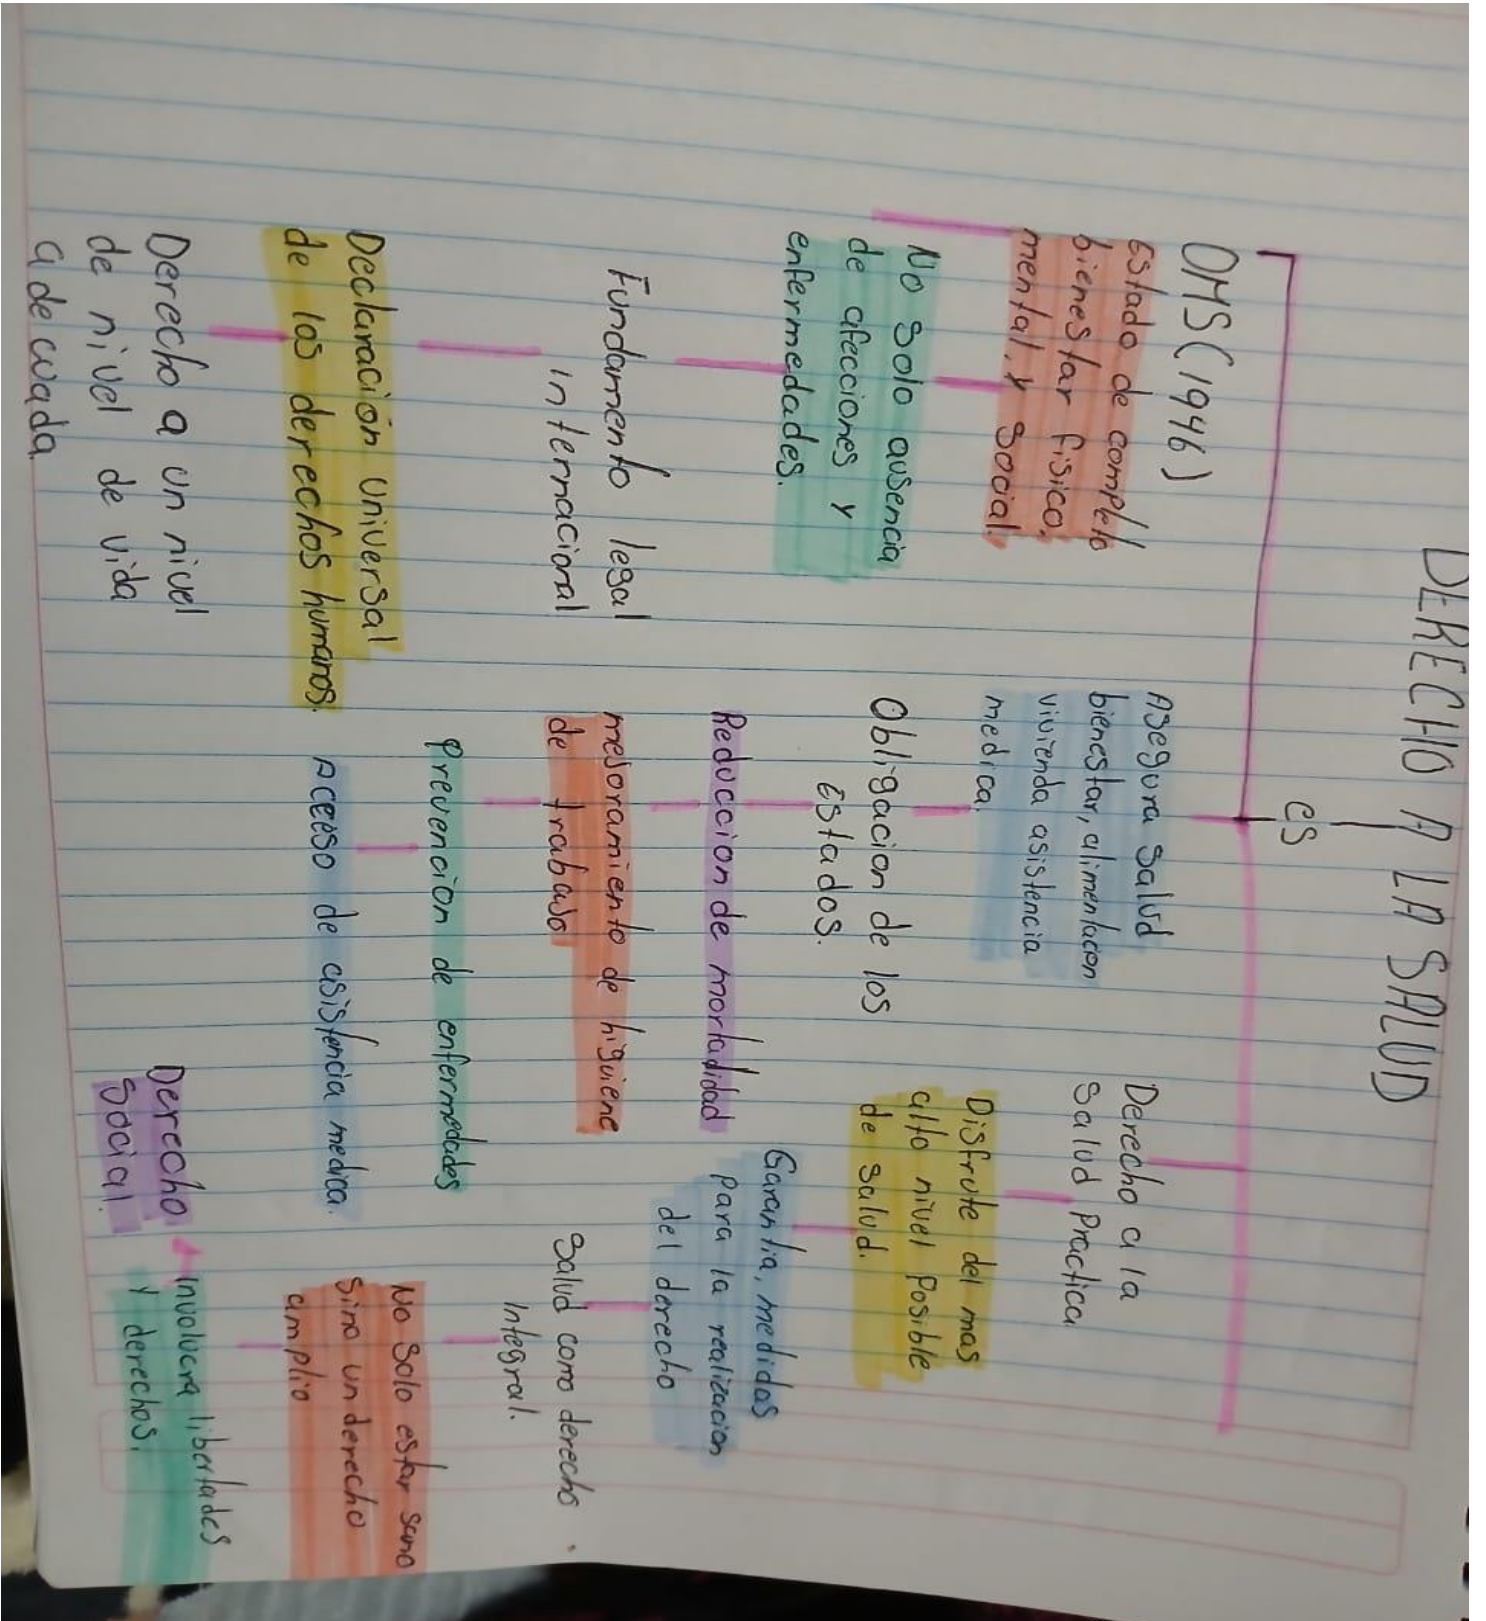 DERECHO A LA SALUD
es
OMS (1946)
Estado de completo
bienestar fisico,
mental, y social.
No solo ausencia
de afecciones y
enfermedades.
Fundamento legal
internacional
Declaración universal
de los derechos humanos.
Derecho a un nivel
de nivel de vida
adecuada
Asegura salud
bienestar, alimentacion
vivienda asistencia
medica.
Obligacion de los
Estados.
Reduccion de mortadidad
mejoramiento de higuiene
de trabajo
Prevencion de enfermedades
Acceso de asistencia medica.
Derecho a la
Salud Practica
Disfrute del mas
alto nivel posible
de salud.
Garantia, medidas
para la realizacion
del derecho
Salud como derecho
Integral.
No solo estar sano
sino un derecho
amplio
Involucra libertades
y derechos.
Derecho
Social.